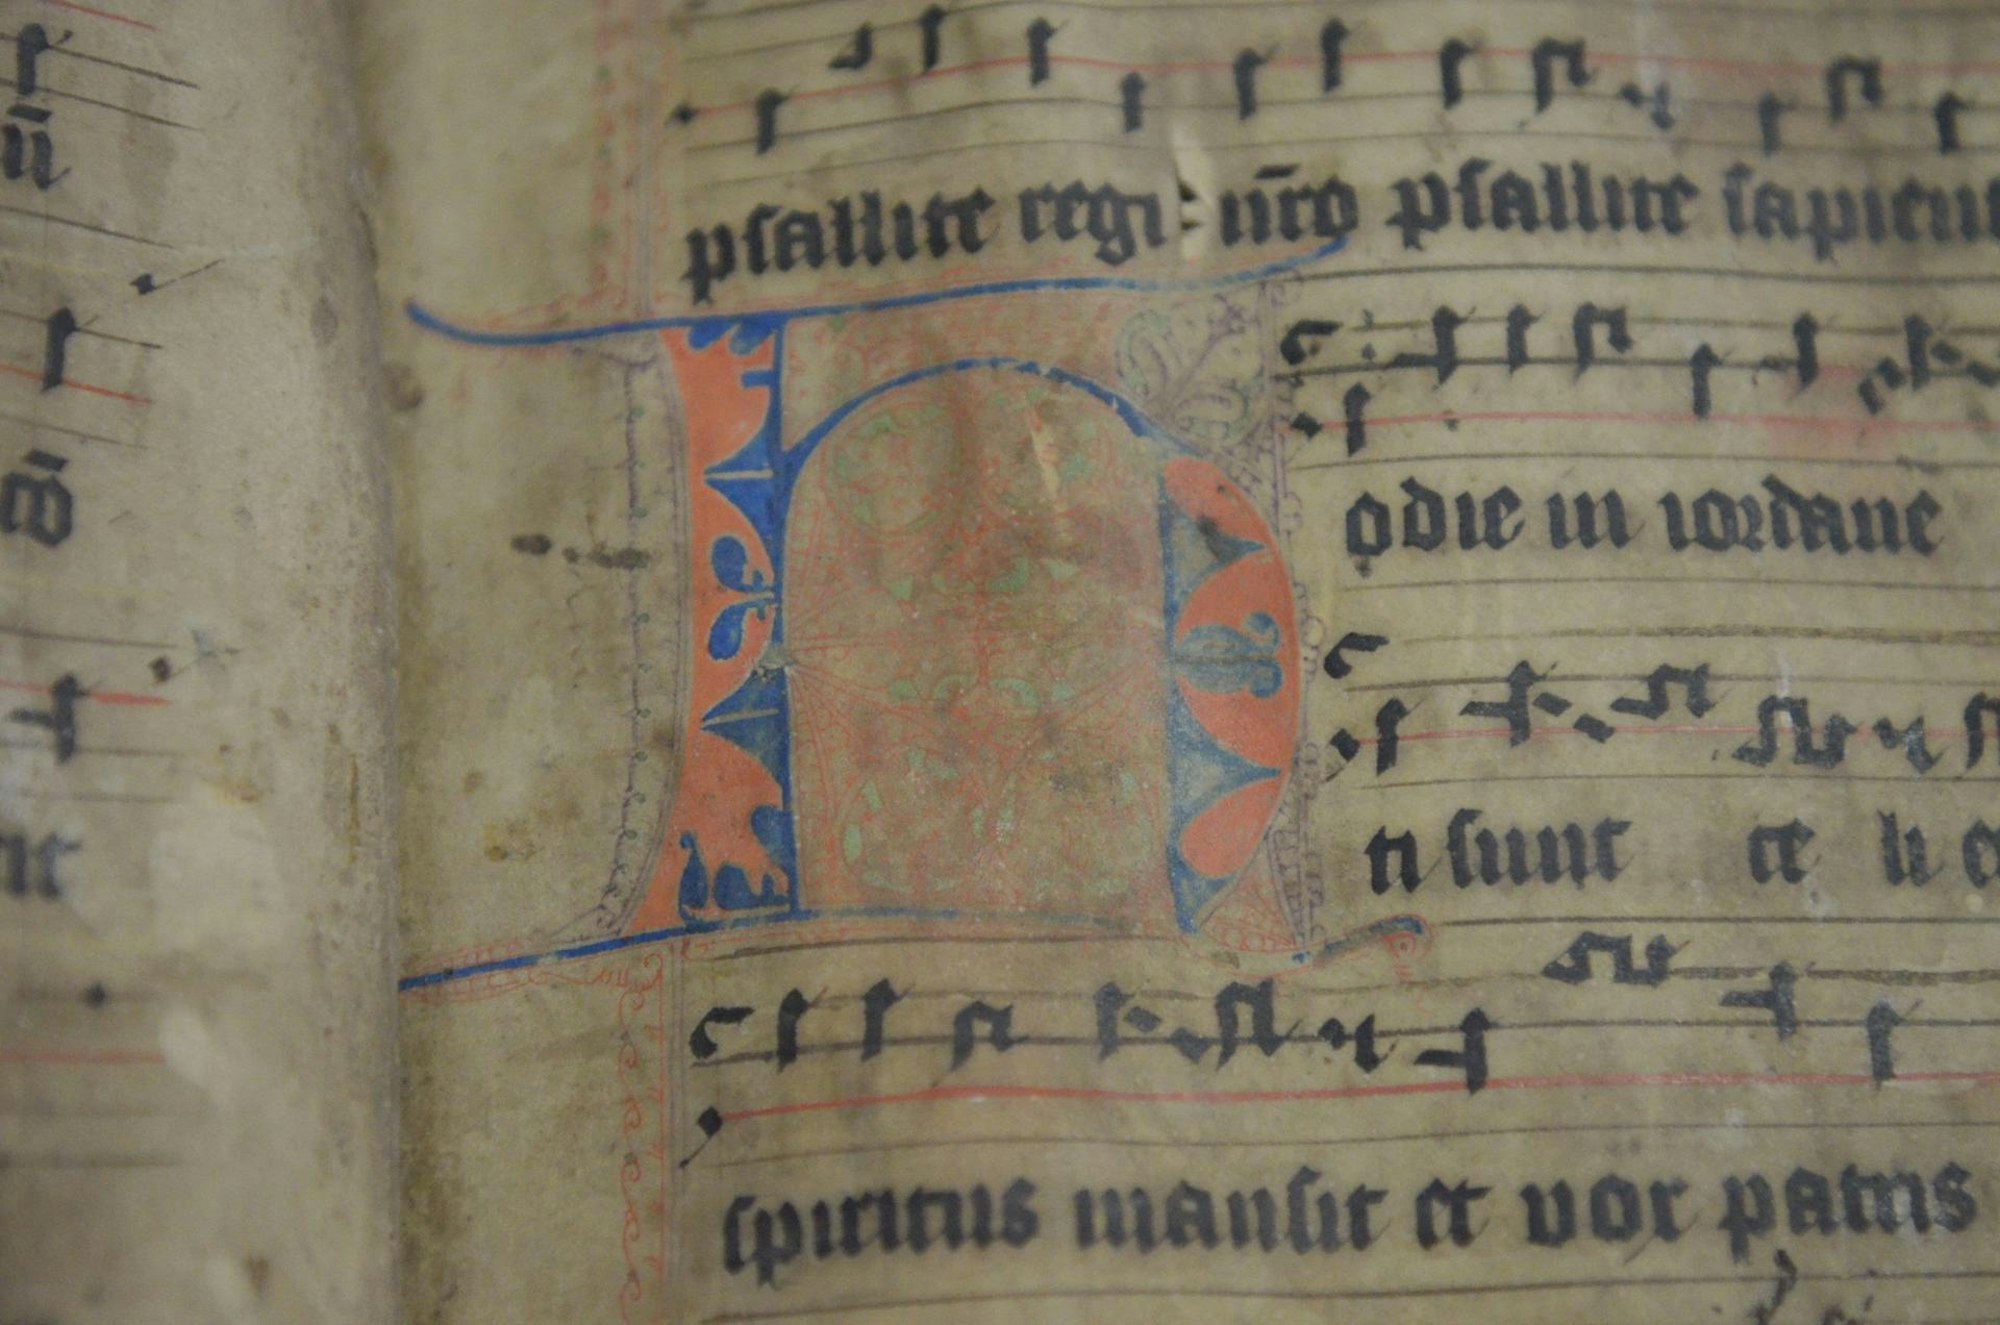 psallite regi nr̄o psallite sapient
Hodie in iordane
ti sunt ce li
spiritus mansit et vox patris